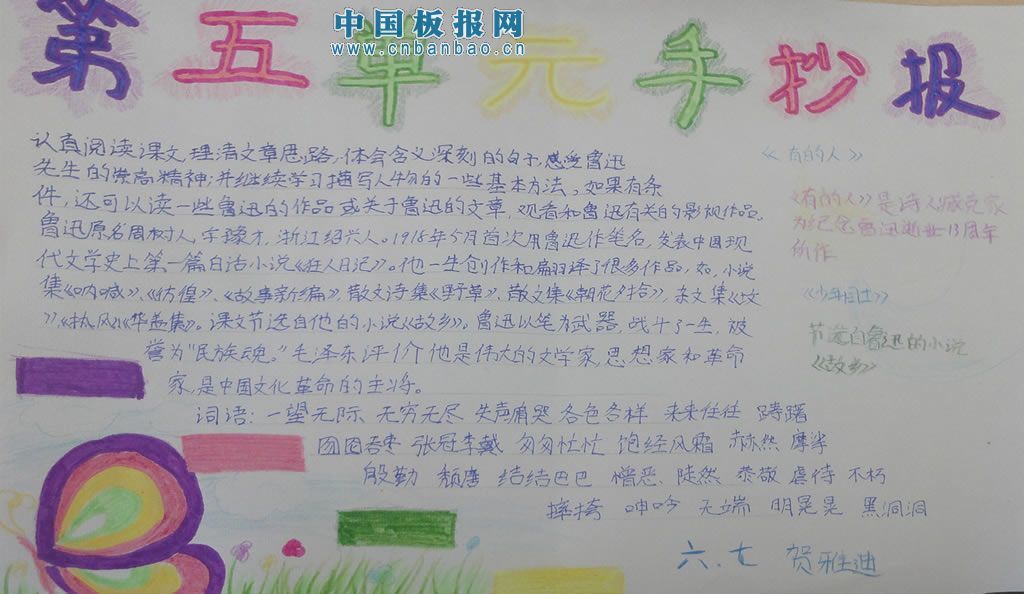 中国板报网
www.cnbanbao.cn
第五单元手抄报
认真阅读课文,理清文章思路,体会含义深刻的句子,感受鲁迅
先生的崇高精神;并继续学习描写人物的一些基本方法。如果有条
件,还可以读一些鲁迅的作品或关于鲁迅的文章,观看和鲁迅有关的影视作品。
鲁迅原名周树人,字豫才,浙江绍兴人。1918年5月首次用鲁迅作笔名,发表中国现
代文学史上第一篇白话小说《狂人日记》。他一生创作和翻译了很多作品,如,小说
集《呐喊》、《彷徨》、《故事新编》,散文诗集《野草》、散文集《朝花夕拾》,杂文集《坟
》,《热风》《华盖集》。课文节选自他的小说《故乡》。鲁迅以笔为武器,战斗了一生,被
誉为“民族魂。”毛泽东评价他是伟大的文学家,思想家和革命
家,是中国文化革命的主将。
词语:一望无际 无穷无尽 失声痛哭 各色各样 来来往往 踌躇
囫囵吞枣 张冠李戴 匆匆忙忙 饱经风霜 赫然 摩挲
殷勤 颓唐 结结巴巴 憎恶 陡然 恭敬 虐待 不朽
呻吟 无端 明晃晃 黑洞洞
《有的人》
《有的人》是诗人臧克家
为纪念鲁迅逝世13周年
所作
《少年闰土》
节选自鲁迅的小说
《故乡》
六.七 贺雅迪